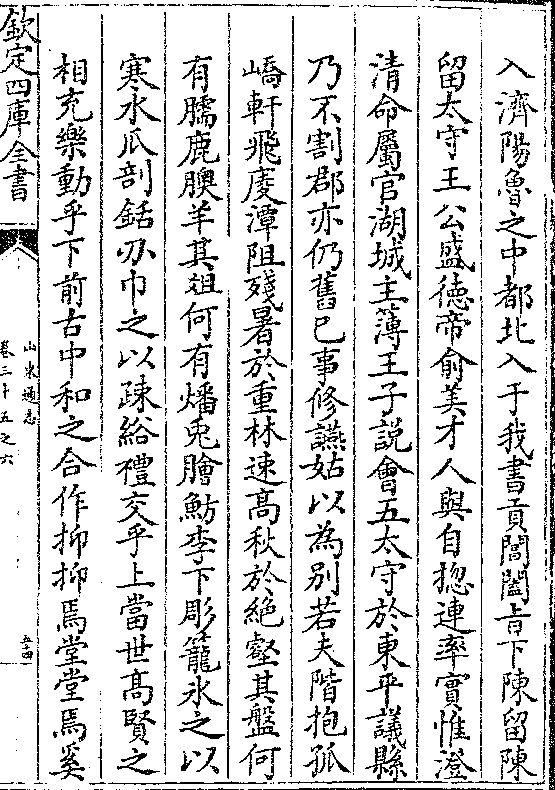 入濟陽魯之中都北入于我書貢閶闔㫖下陳留陳
留太守王公盛德帝俞美才人與自揔連率實惟澄
清命屬官湖城主簿王子說會五太守於東平議縣
乃不割郡亦仍舊已事修讌姑以為別若夫階抱孤
嶠軒飛廋潭阻殘暑於重林速高秋於絶壑其盤何
有臑鹿腴羊其俎何有燔兎膾魴李下彫籠氷之以
寒水瓜剖銛刅巾之以疎綌禮交乎上當世髙賢之
相充樂動乎下前古中和之合作抑抑焉堂堂焉奚
欽定四庫全書
山東通志
卷三十五之六
五四